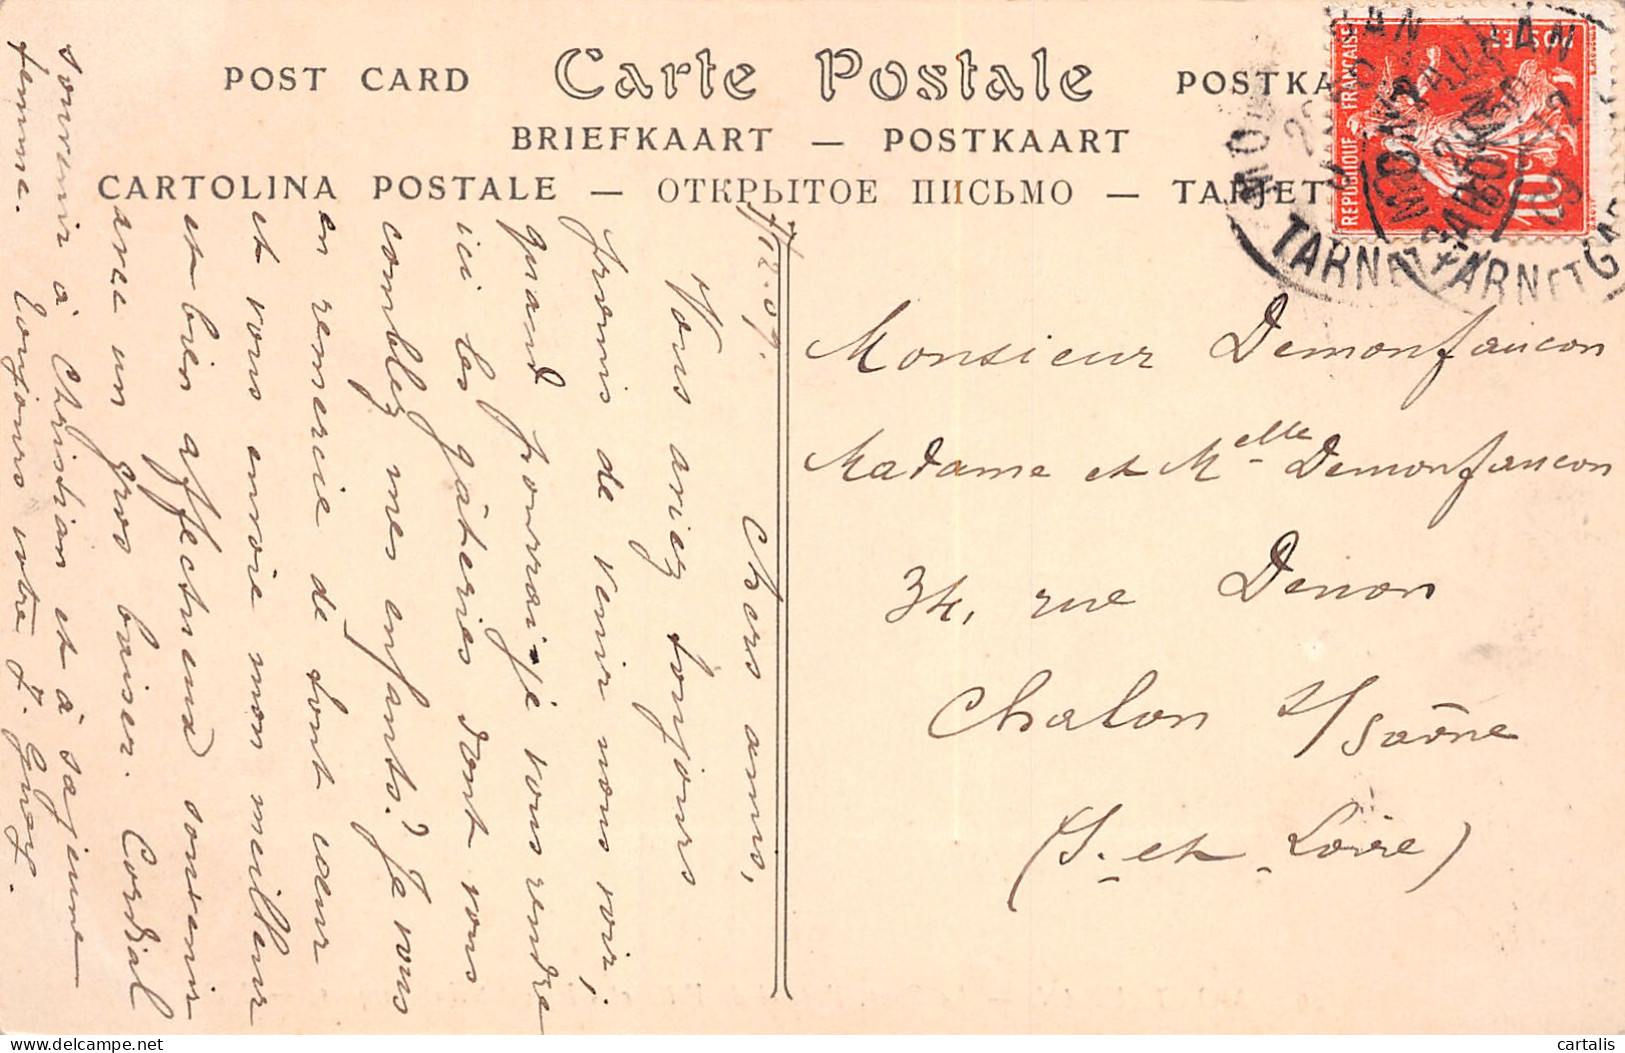 POST CARD Carte Postale POSTKA
BRIEFKAART — POSTKAART
CARTOLINA POSTALE — ОТКРЫТОЕ ПИСЬМО — TARJET
REPUBLIQUE FRANÇAISE
POSTES
10
MONTAUBAN
TARN ET GAR
TARN ET GAR
12
09
Monsieur Demonfaucon
Madame et Melle Demonfaucon
34, rue Denon
Chalon s/Saône
(S.-et-Loire)
12.09.
Chers amis,
Vous aviez toujours
promis de venir nous voir;
quand pourrai-je vous rendre
ici les gâteries dont vous
comblez mes enfants? Je vous
en remercie de tout cœur
et vous envoie mon meilleur
et bien affectueux souvenir
avec un gros baiser. Cordial
souvenir à Christian et à sa jeune
femme. Toujours votre J.
cartalis